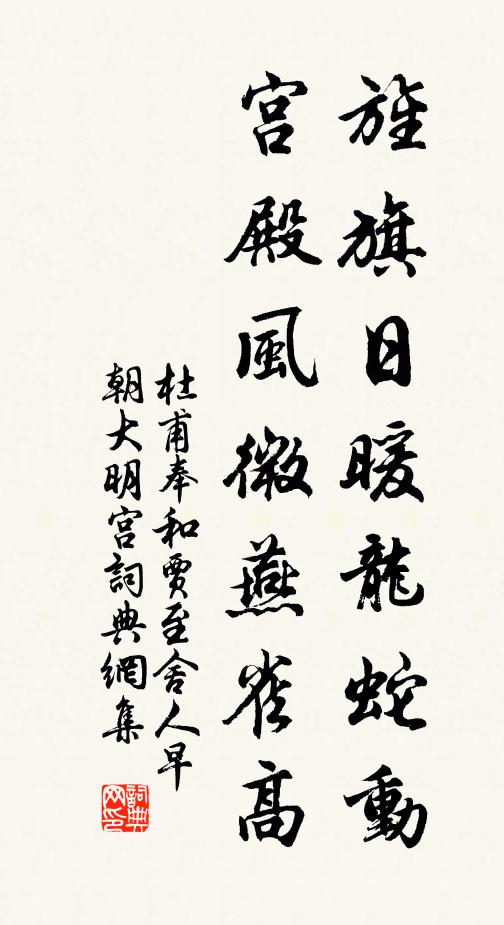 旌旗日暖龍蛇動
宮殿風微燕雀高
杜甫奉和賈至舍人早
朝大明宮詞典網集
詞典
网印